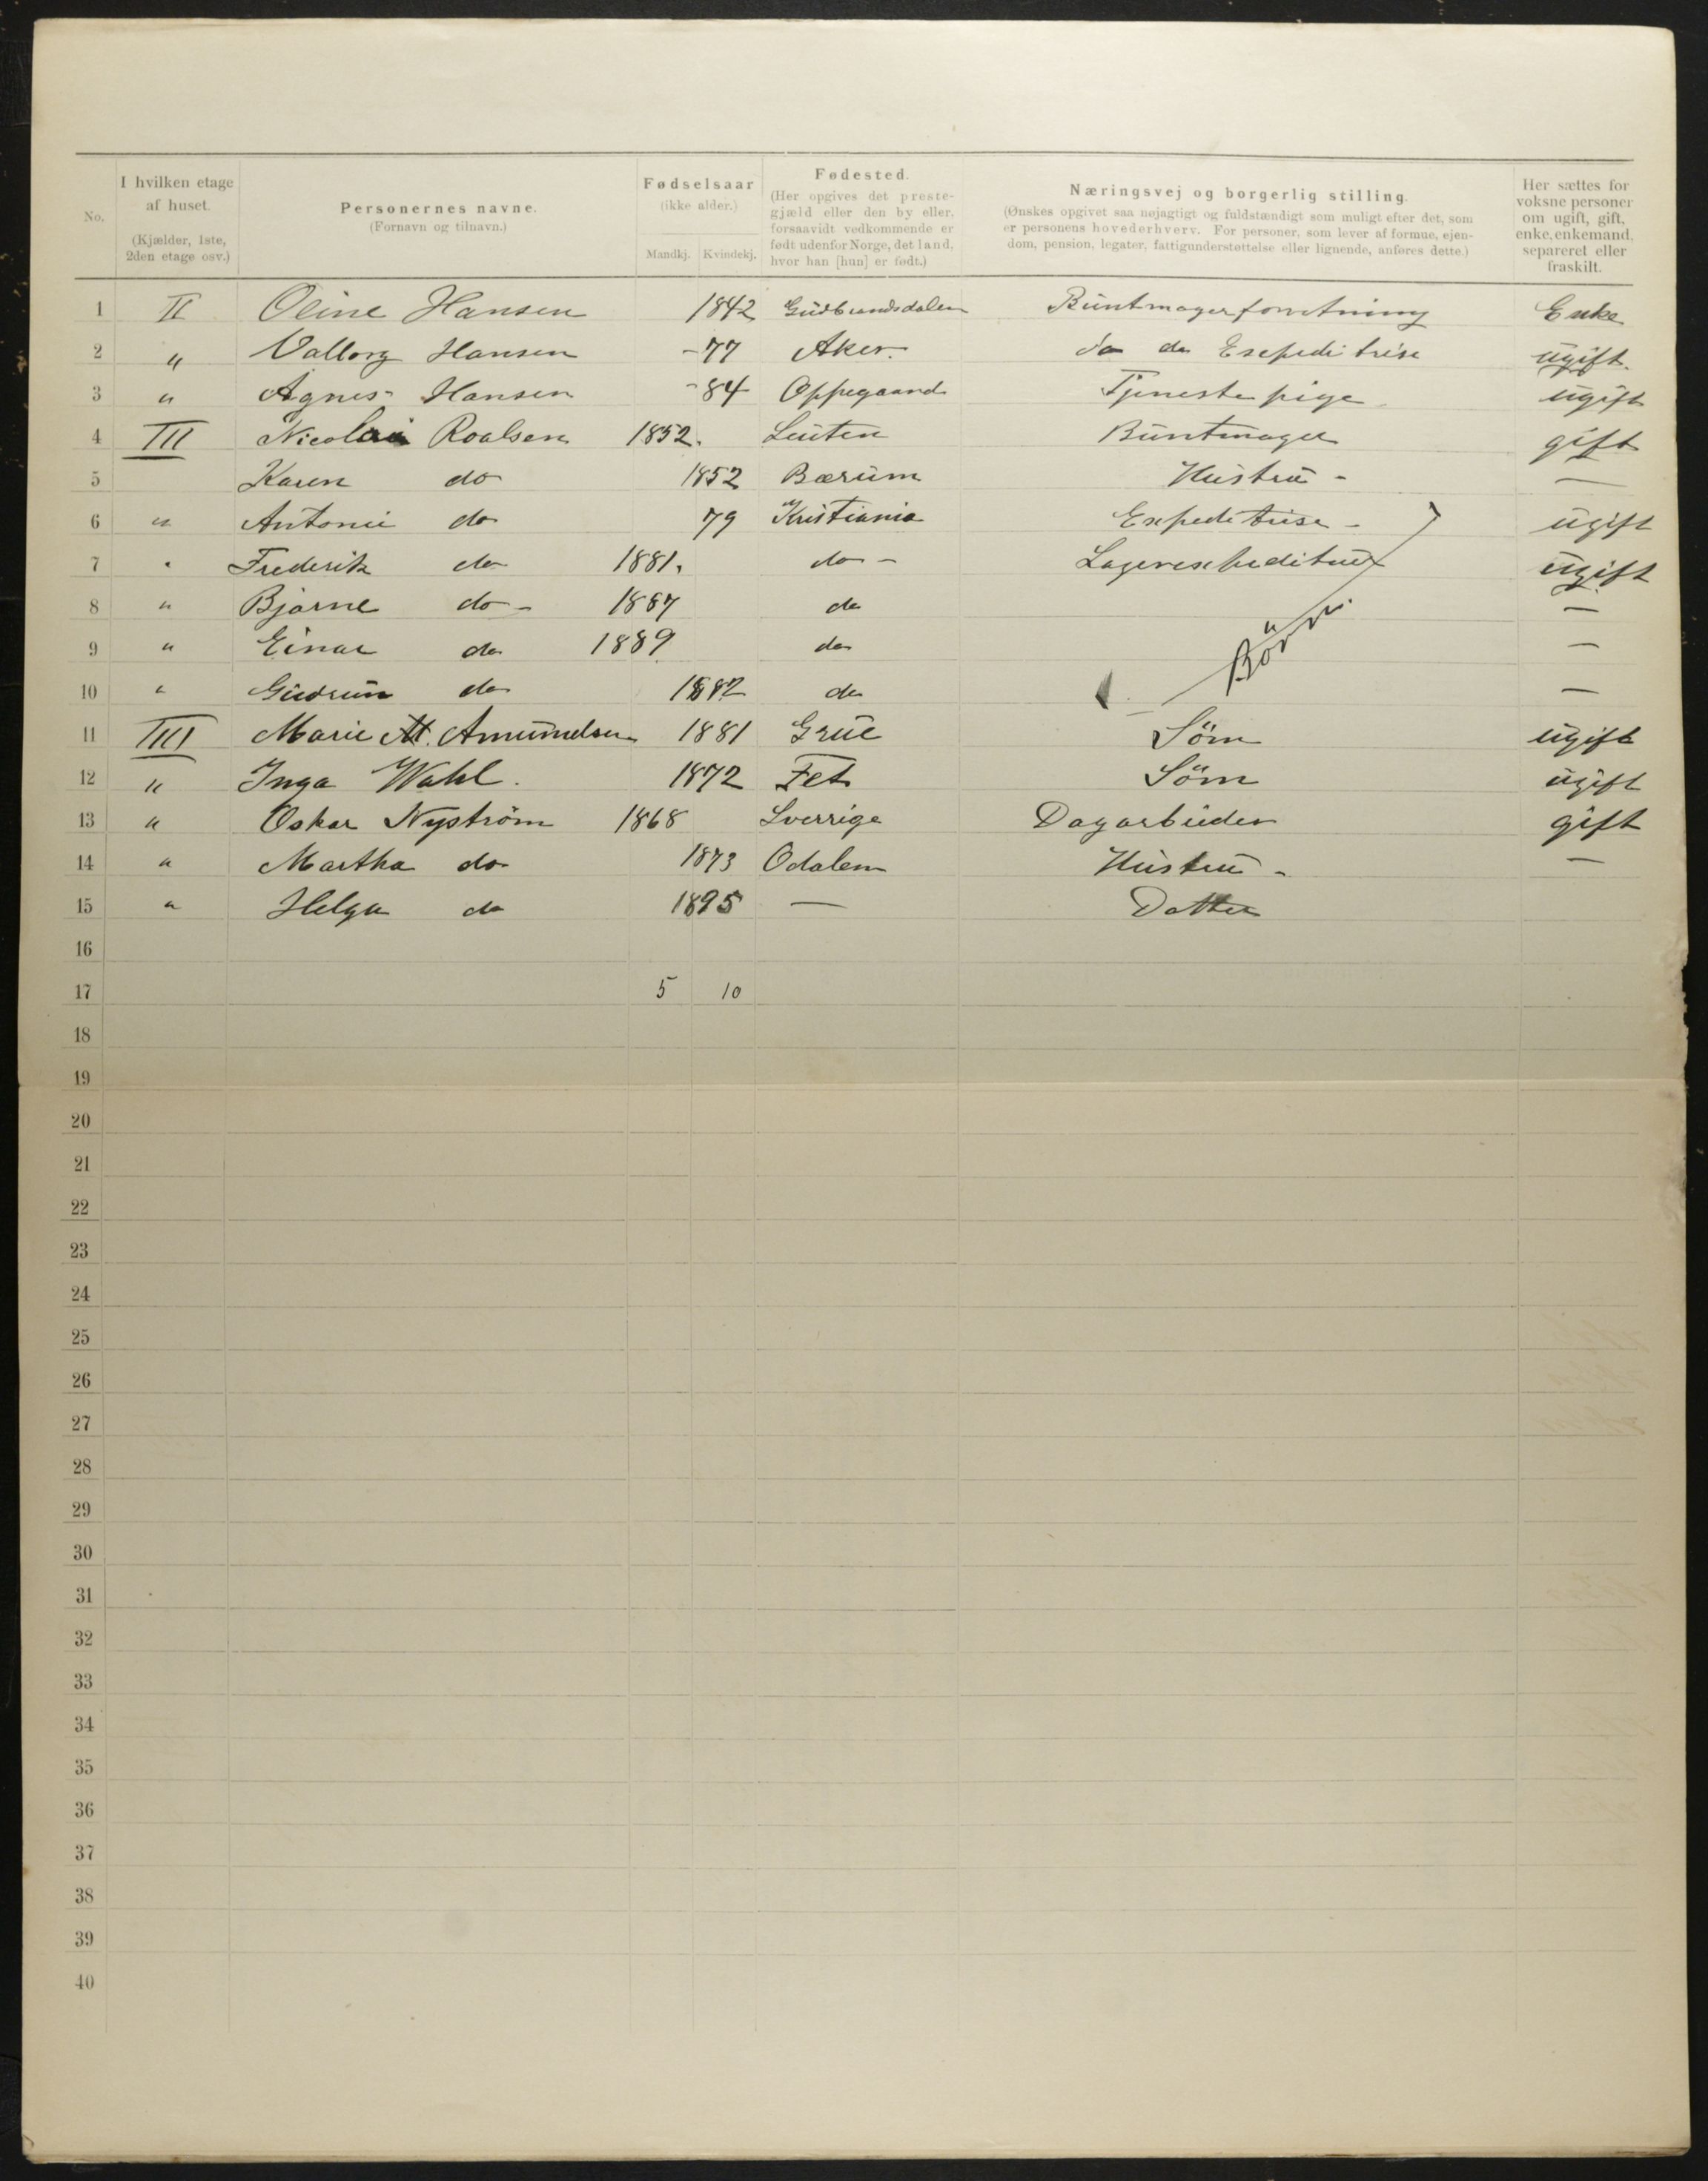 No. I hvilken etage af huset. (Kjælder, 1ste, 2den etage osv.) Personernes navne. (Fornavn og tilnavn.) Fødselsaar (ikke alder.) Mandkj. Kvindekj. Fødested. (Her opgives det prestegjæld eller den by eller, forsaavidt vedkommende er født udenfor Norge, det land, hvor han [hun] er født.) Næringsvej og borgerlig stilling. (Ønskes opgivet saa nøjagtigt og fuldstændigt som muligt efter det, som er personens hovederhverv. For personer, som lever af formue, ejendom, pension, legater, fattigunderstøttelse eller lignende, anføres dette.) Her sættes for voksne personer om ugift, gift, enke, enkemand, separeret eller fraskilt.
1 II Oline Hansen 1842 Gudbrandsdalen Buntmagerforretning Enke
2 " Valborg Hansen -77 Aker. do do Exepeditrise ugift.
3 " Agnes Hansen -84 Oppegaard Tjenestepige ugift
4 III Nicolai Roalsen 1852. Leuten Buntmager gift
5 Karen do 1852 Bærum Hustru - —
6 " Antonie do 79 Kristiania Expeditrise - ugift
7 " Frederik do 1881. do - Lagerexpeditør ugift
8 " Bjarne do - 1887 do —
9 " Einar do 1889 do Börn. —
10 " Gudrun do 1882 do —
11 III Marie M. Amundsen 1881 Grue Söm ugift
12 " Inga Wahl. 1872 Fet Söm ugift
13 " Oskar Nyström 1868 Sverrige Dagarbeider gift
14 " Martha do 1873 Odalen Hustru - —
15 " Helga do 1895 — Datter
16
17 5 10
18
19
20
21
22
23
24
25
26
27
28
29
30
31
32
33
34
35
36
37
38
39
40